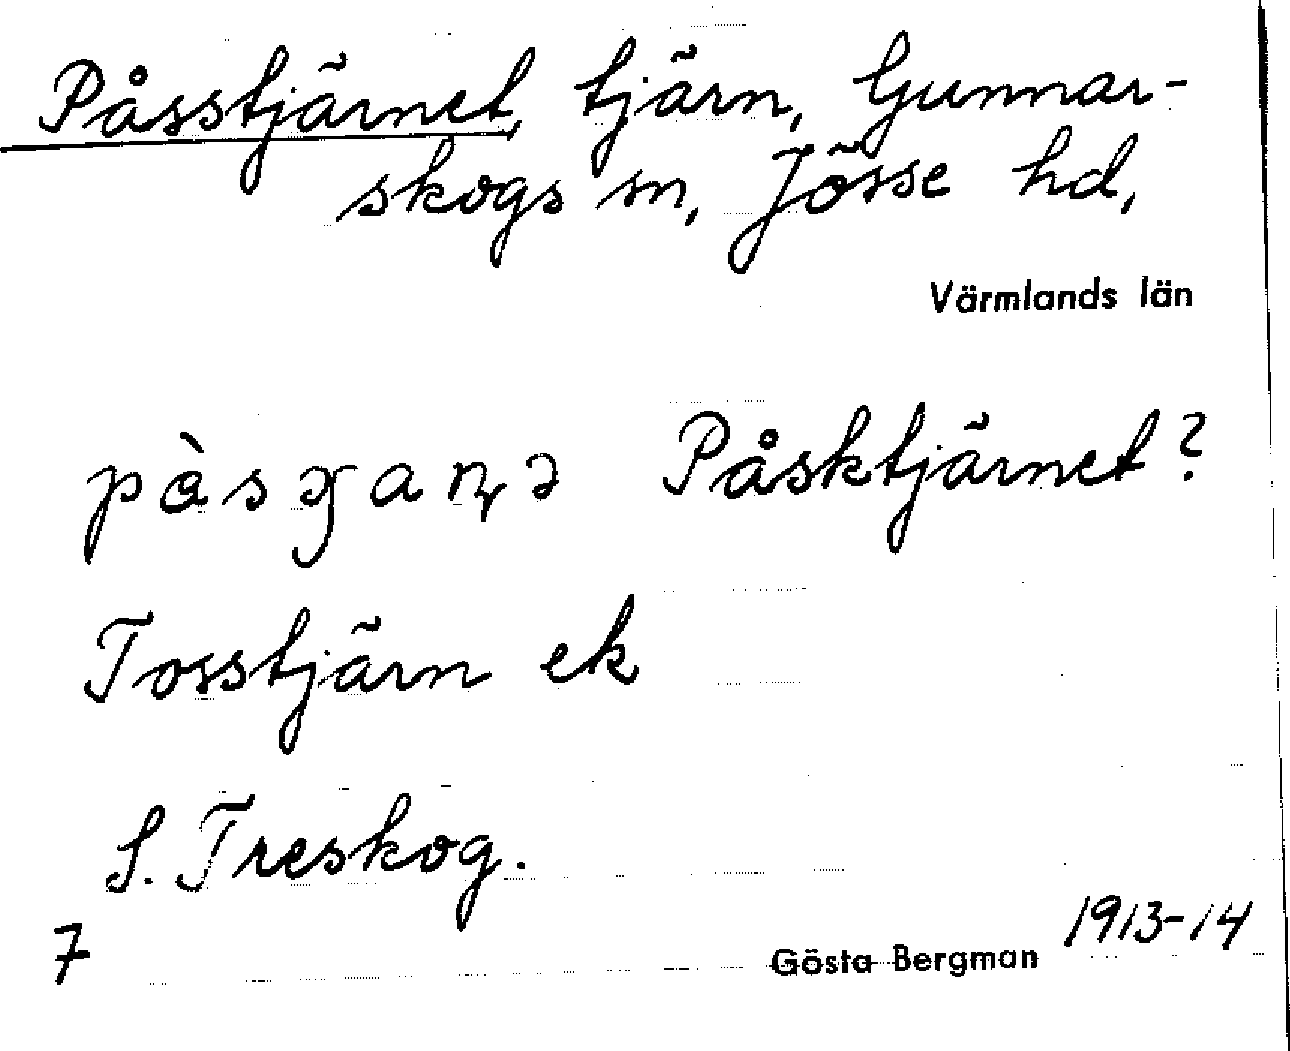 Påsstjärnet, tjärn, Gunnar-
skogs sn, Jösse hd,
Värmlands län
Påsktjärnet?
Tosstjärn ek
S. Treskog.
7
Gösta Bergman 1913-14